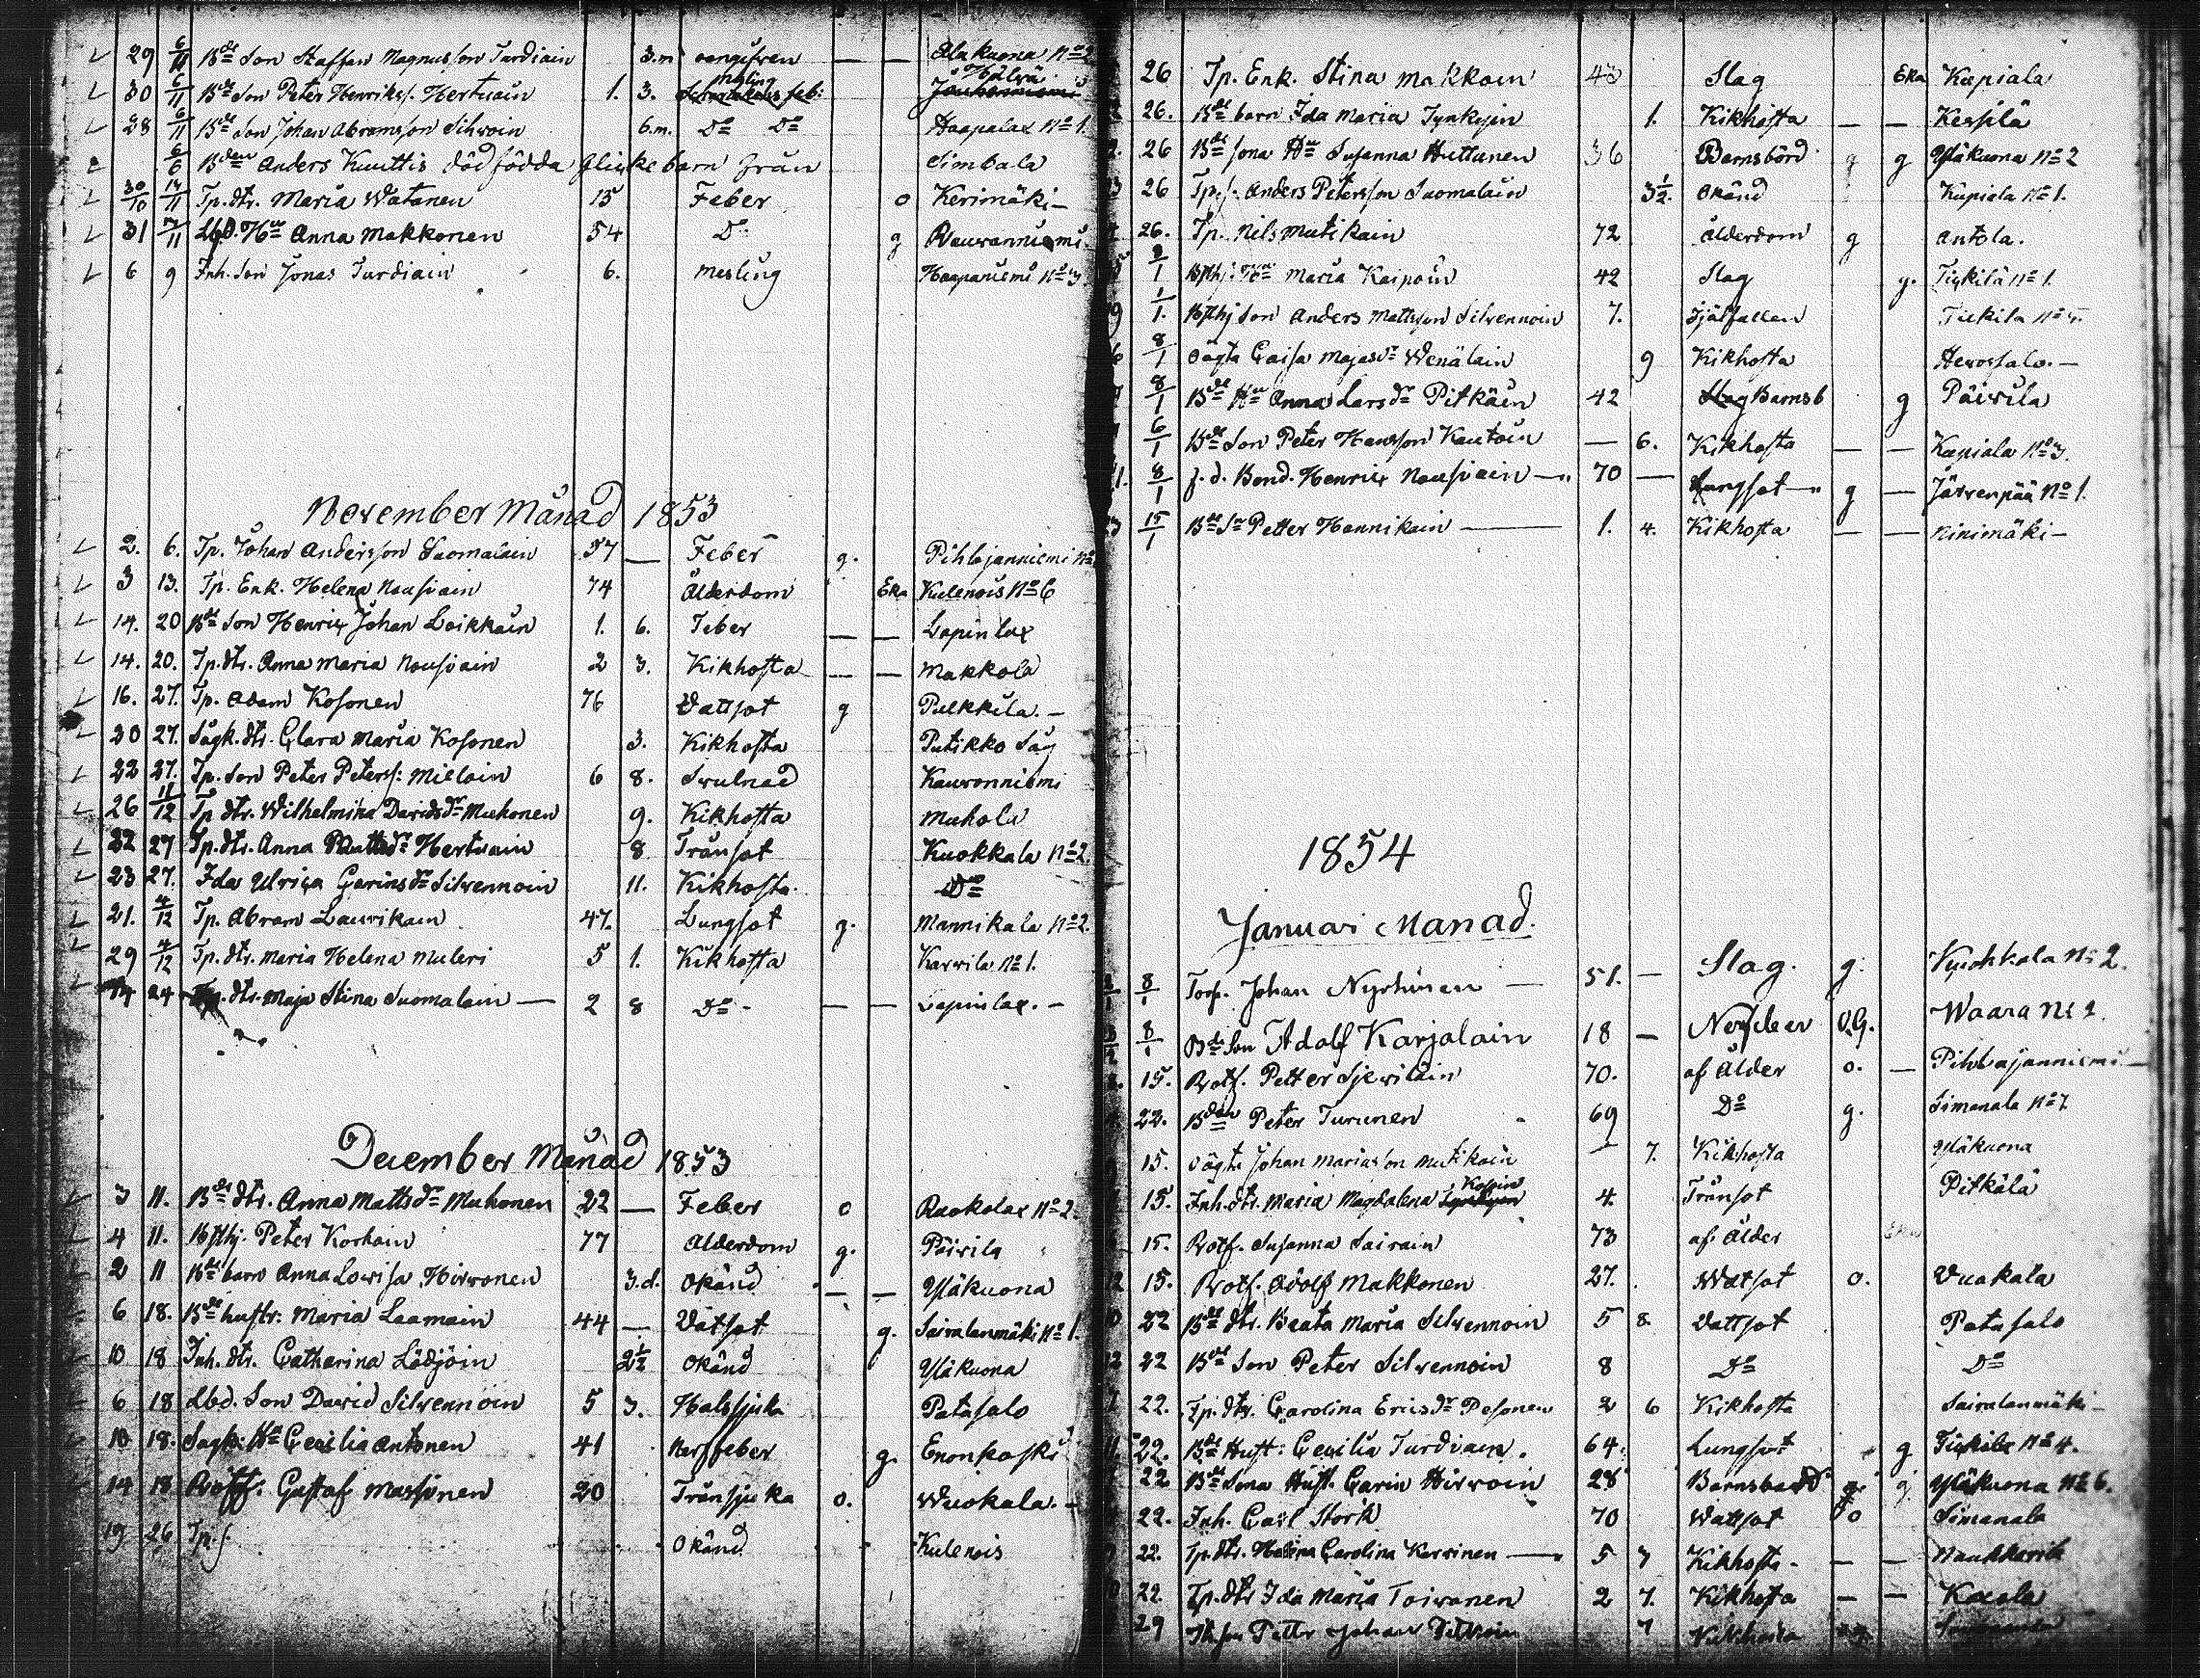 29 6/11 Bde Son Staffan Magnusson Turdiain 3.m. oangifven — — Alakuona No 2
30 6/11 Bde Son Peter Henrikss. Hertuain 1. 3. Mesling Hälvä
28 6/11 Bde Son Johan Abramsson Silvoin 6.m. Do Do Haapalax No 1.
6/6 Bden Anders Kuuttis dödfödda flickebarn från Simbala
30/10 14/11 Tp. dtr. Maria Watanen 15 Feber o Kerimäki —
31 7/11 Lbd. Hu Anna Makkonen 54 Do g Rauvanniemi
6 9 Inh. Son Jonas Turdiain 6. Mesling Haapaniemi No 3
November Månad 1853
2. 6. Tp. Johan Andersson Suomalain 37 — Feber g. Pihlajanniemi No
3 13. Tp. Enk. Helena Nousiain 74 Ålderdom Eka Kulenois No 6
14. 20 Bde Son Henrix Johan Loikkain 1. 6. Feber — — Lapinlax
14. 20. Tp. dtr. Anna Maria Nousiain 2 3. Kikhosta — — Makkola
16. 27. Tp. Adam Kosonen 76 Vattsot g Pulkkila. —
20 27. Sågk. dtr. Clara Maria Kosonen 3. Kikhosta Putikko Såg
22 27. Tp. Son Peter Peterss: Mielain 6 8. Svulnad Kauvonniemi
26 11/12 Tp dtr. Wilhelmina Davidsdr Muhonen 9. Kikhosta Muhola
22 27 Tp. dtr. Anna Mattsdr Hertuain 8 Trånsot Kuokkala No 2
23 27. Ida Ulrica Carinsdr Silvennoin 11. Kikhosta. Do
21. 4/12 Tp. Abram Laurikain 47. Lungsot g. Mannikala No 2.
29 4/12 Tp. dtr. Maria Helena Muleri 5 1. Kikhosta Karvila No 1.
14 24 Tp. dtr. Maja Stina Suomalain — 2 8 Do — — Lapinlax. —
December Månad 1853
3 11. Bds dtr. Anna Mattsdr Muhonen 22 — Feber o Raokolax No 2.
4 11. Bsthj. Peter Korhoin 77 Ålderdom g. Päivila
2 11 Bde barn Anna Lowisa Hirvonen 3.d. Okänd — — Yläkuona
6 18. Bde hustr: Maria Laamain 44 — Vatsot g. Sairalanmäki No 1.
10 18 Inh. dtr. Catharina Lödjöin 2½ Okänd Yläkuona
6 18 Lbd. Son David Silvennoin 5 3. Halssjuka Patasalo
10 18. Sagk: Hu Cecilia Antonen 41 Nerffeber g. Enonkoski
14 18 Rotf. Gustaf Massinen 20 Trånsjuka o. Wuokala. —
19 26 Tp. s Okänd Kulenois
26 Tp. Enk. Stina Makkoin 43 Slag Eka Kupiala
26. Bde barn Ida Maria Tynkyin 1. Kikhosta — — Kesälä
26 Bde sona Hu Susanna Huttunen 36 Barnsbörd g Yläkuona No 2
26 Tp. s. Anders Petersson Suomalain 3½. Okänd Kupiala No 1.
26. Tp. Nils Mutikain 72 Ålderdom g Antola.
8/1 Bsthj: Hu Maria Kaipoin 42 Slag g. Tiykilä No 1.
9 1/1. Bsthj Son Anders Mattsson Silvennoin 7. Fjälfallen Tulkila No 4.
6 8/1 Oägta Caisa Majasdr Wenälain 9 Kikhosta Hevossalo. —
7 8/1 Bde Hu Anna Larsdr Pitkäin 42 Slag Barnsb g Päivila
6/1 Bde Son Peter Hansson Kautoin — 6. Kikhosta — — Kupiala No 3.
11. 8/1 f. d. Bond. Henrix Nousiain — 70 — Lungsot — g — Järvenpää No 1.
15/1 Bde Sn Petter Hannikain — 1. 4. Kikhosta — — Ninimäki —
1854
Januari Månad.
8/1 Torp. Johan Nyrhinen — 51. — Slag. g. Kuokkala No 2.
8/1 Bde Son Adolf Karjalain 18 — Nerfeber O.G. Waara No 2.
15. Rotf. Petter Sjevilain 70. af Ålder o. — Pihlajanniemi —
22. Bden Peter Turunen 69 Do g. Simanala No 7
15. Oägta Johan Mariason Mutikain — 7. Kikhosta Yläkuona
15. Inh. dtr. Maria Magdalena Kossin 4. Trånsot Pitkälä
15. Rotf. Susanna Sairain 73 af Ålder
12 15. Rotf. Adolf Makkonen 27. Watsot o. Vuokala
22 Bde dtr. Beata Maria Silvennoin 5 8. Vattsot Patasalo
12 22 Bde Son Peter Silvennoin 8 Do Do
22. Tp. dtr. Carolina Ericsdr Pesonen 2 6 Kikhosta Sairalanmäki —
11. 22. Bde Hust: Cecilia Turdiain. 64. Lungsot g Tiykilä No 4.
22 Bde Sona Hust. Carin Hirvoin 28 Barnsbörd g. Yläkuona No 6.
22. Inh. Carl Stork 70 Wattsot o Simanala
22. Tp. dtr. Helena Carolina Kervinen — 5 7 Kikhosta — — —
22. Tp. dtr Ida Maria Toivanen 2 7. Kikhosta — — Kaxola
29 Petter Johan 7 Kikhosta